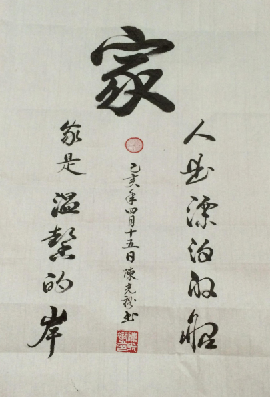 家
人漂泊的船
家是温馨的岸
己亥年四月十五日 陳光书